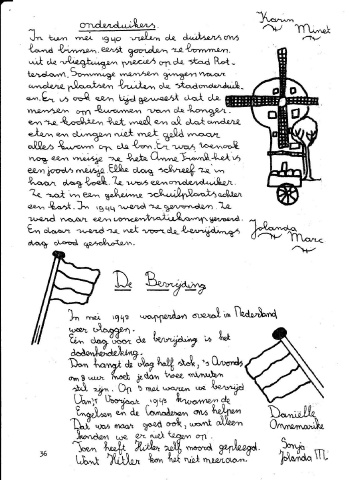 onderduikers.
In ten mei 1940 vielen de duitsers ons
land binnen, eerst goorden ze bommen
uit de vliegtuigen precies op de stad Rot-
terdam. Sommige mensen gingen naar
andere plaatsen buiten de stad onderduik-
en. Er is ook een tijd geweest dat de
mensen omkwamen van de honger
en ze kochten het meel en al dat andere
eten en dingen niet met geld maar
alles kwam op de bon. Er was ook
nog een meisje ze hete Anne Frank het is
een joods meisje Elke dag schreef ze in
haar dag boek. Ze was een onderduiker.
Ze zat in een geheime schuilplaats achter
een kast. In 1944 werd ze gevonden. Ze
werd naar een concentratiekamp gevoerd.
En daar werd ze net voor de bevrijdings
dag dood geschoten.
Karin
Minet
Jolanda
Marc
De Bevrijding
In mei 1945 wapperden overal in Nederland
weer vlaggen.
Eén dag voor de bevrijding is het
dodenherdenking.
Dan hangt de vlag half stok, 's Avonds
om 8 uur moet je dan twee minuten
stil zijn. Op 5 mei waren we bevrijd
Van't Voorjaar 1945 kwamen de
Engelsen en de Canadezen ons helpen
Dat was maar goed ook, want alleen
konden we er niet tegen op.
Toen heeft Hitler zelf moord gepleegd.
Want Hitler kon het niet meer aan.
Daniëlle
Annemarike
Sonja
Jolanda M.
36